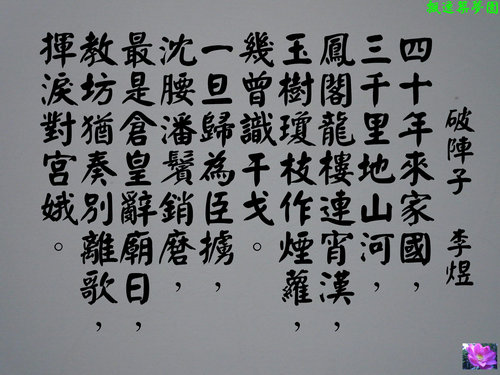 楓逸築夢園
破陣子　李煜
四十年來家國，
三千里地山河，
鳳閣龍樓連宵漢，
玉樹瓊枝作煙蘿，
幾曾識干戈。
一旦歸為臣擄，
沈腰潘鬢銷磨，
最是倉皇辭廟日，
教坊猶奏別離歌，
揮淚對宮娥。